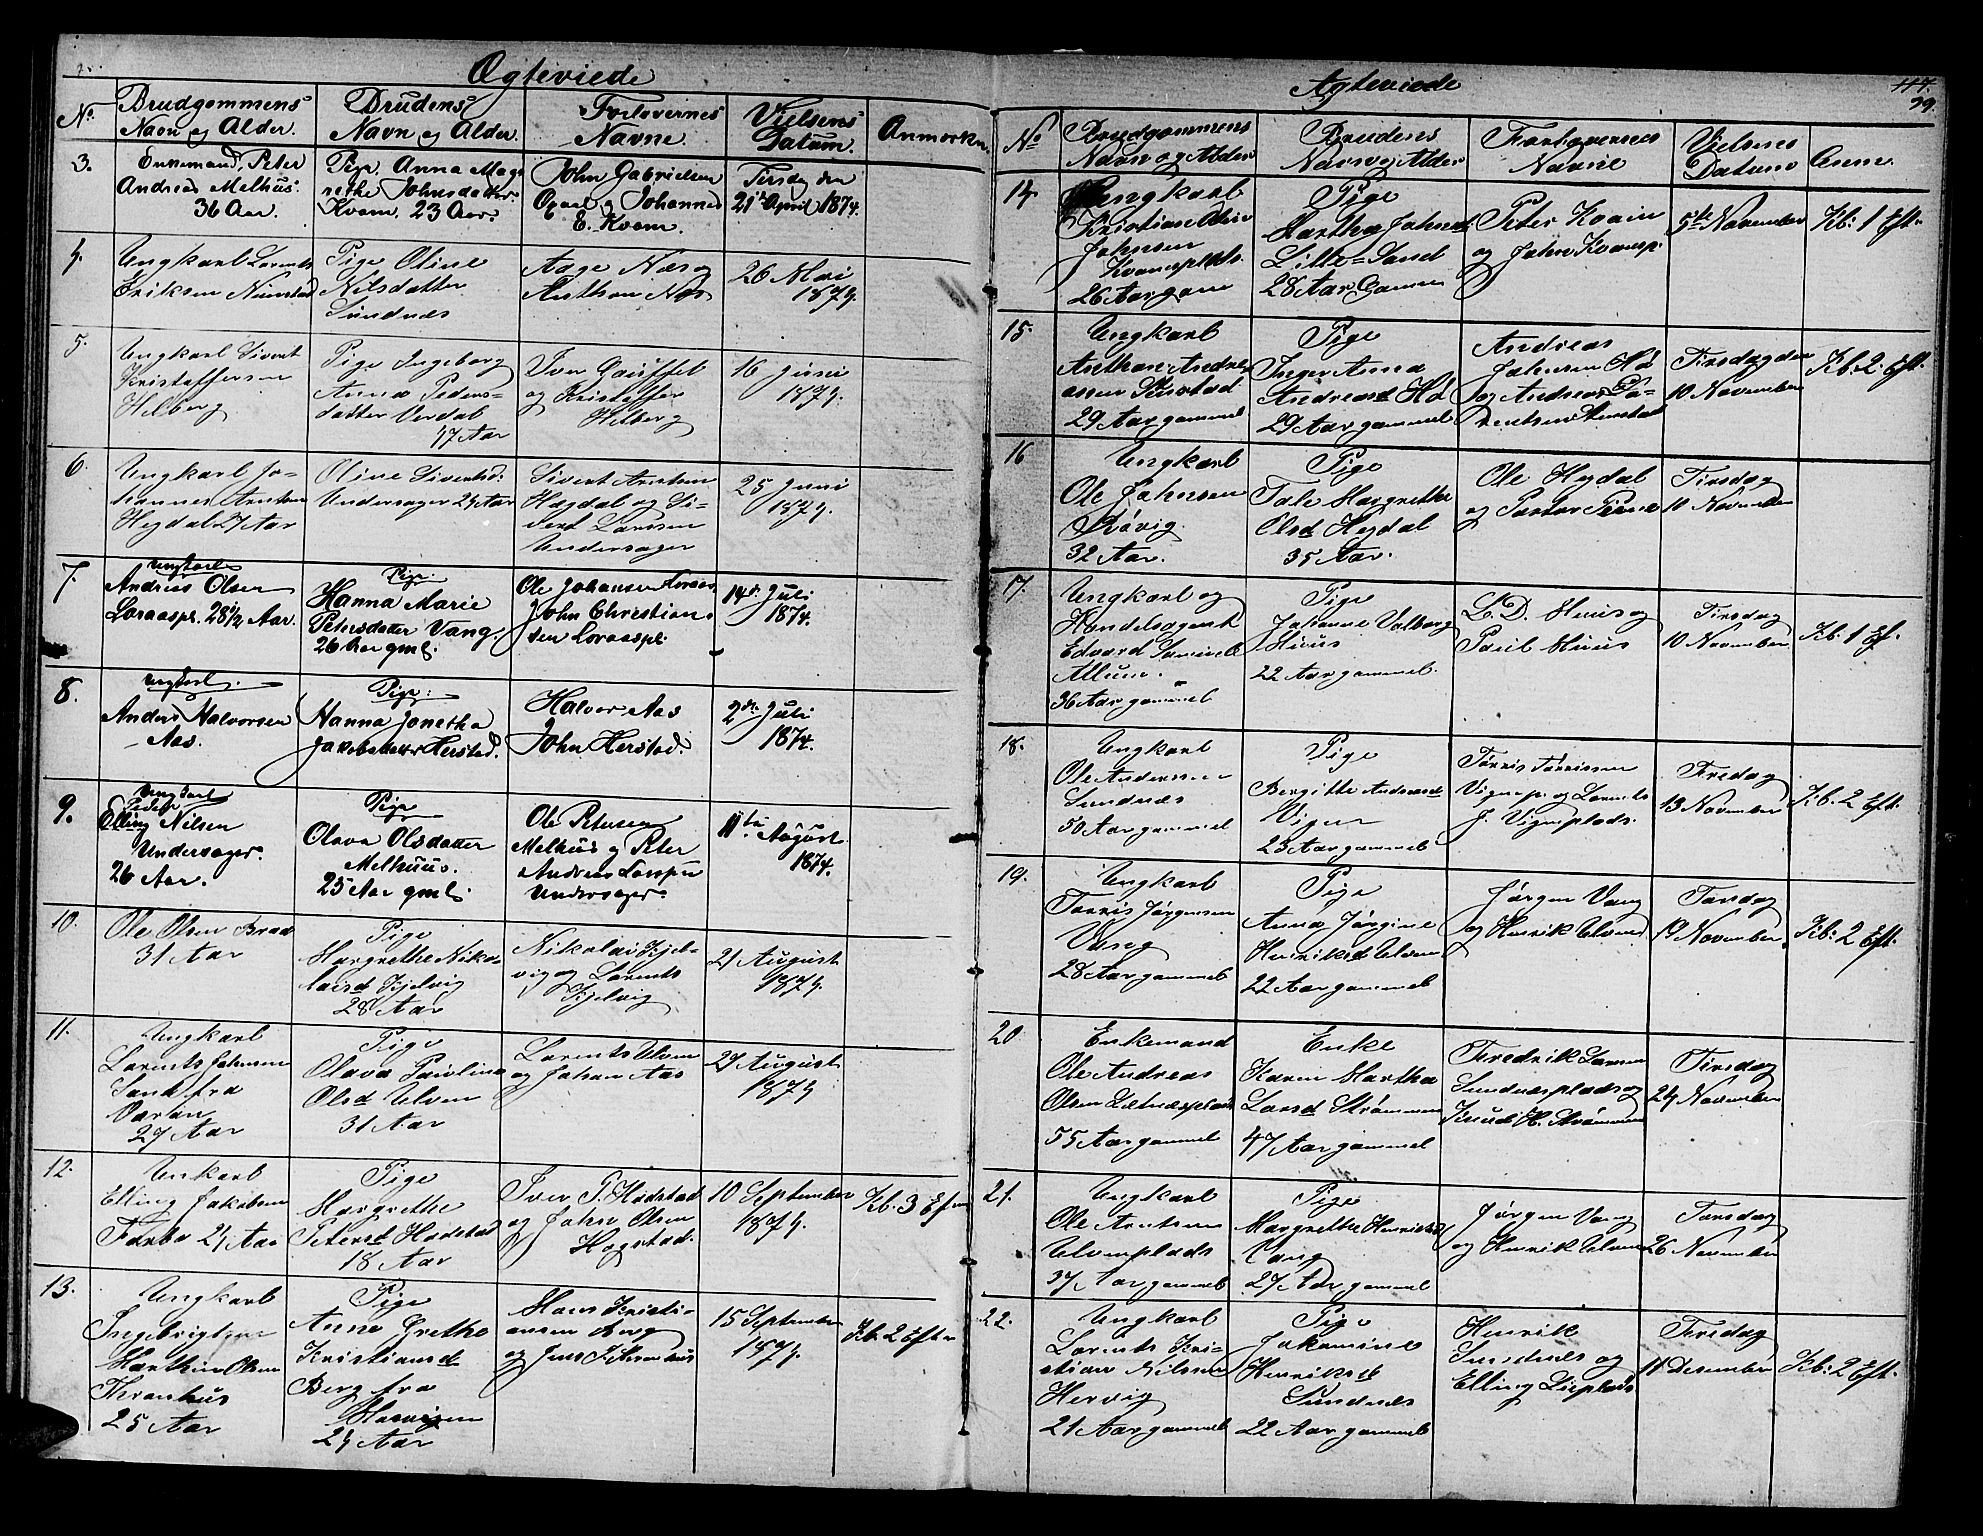 Ægteviede
No.
Brudgommens
Navn og Alder.
Brudens
Navn og Alder.
Forlovernes
Navne.
Vielsens
Datum.
Anmærkn.
3.
Enkemand, Peter
Andreas Melhus.
36 Aar.
Pige Anna Mag
rethe Johnsdatter
Kvam. 23 Aar.
John Gabrielsen
og Johannes
E. Kvam.
Tirsdag den
21de April 1874.
4.
Ungkarl Lorents
Eriksen Nimstad
Pige Oline
Nilsdatter
Sundnæs
Aage Næs og
Anthon Næs
26 Mai
1874.
5.
Ungkarl Sivert
Kristoffersen
Helberg
Pige Ingeborg
Anna Peders-
datter Verdal
47 Aar
Iver
og Kristoffer
Helberg
16 Juni
1874.
6.
Ungkarl Jo-
hannes Arntsen
Hegdal 27 Aar
Oline Sivertsd.
Undersager 24 Aar
Sivert Arntsen
Hegdal og Si-
vert Larsen
Undersager
25 Juni
1874.
7.
Ungkarl
Andreas Olsen
Loraaspl. 28 1/2 Aar.
Pige.
Hanna Marie
Petersdatter Vang.
26 Aar gml.
Ole Johansen Loraas
John Christian-
sen Loraaspl.
14de Juli
1874.
8.
Ungkarl.
Anders Halvorsen
Aas.
Pige.
Hanna Jonetha
Jakobsdatter Herstad.
Halvor Aas
John Herstad.
2den Juli
1874.
9.
Ungkarl
Peder
Elling Nilsen
Undersager.
26 Aar.
Pige
Olava Olsdatter
Melhuus.
25 Aar gml.
Ole Petersen
Melhus og Peter
Andreas
Undersager.
11te August
1874.
10.
Ole Olsen Brad
31 Aar
Pige
Margrethe Niko-
laisd Kjelvig
28 Aar
Nikolai Kjel-
vig og Lorents
Kjelvig
21 August
1874.
11.
Ungkarl
Lorents Johnsen
Sand fra
27 Aar
Pige
Olava Paulina
Olsd Elven
31 Aar
Lorents Elven
og Johan Aas
27 August
1874
12.
Unkarl
Elling Jakobsen
Tarbo 24 Aar
Pige
Margrethe
Petersd Hodstad
18 Aar
Iver P. Hodstad
og John Olsen
Hogstad.
10 September
1874.
Kb. 3 Eft
13.
Ungkarl
Ingebrigt
Marthin Olsen
Tkranhus
25 Aar
Pige
Anne Grethe
Kristiansd
Berg fra
24 Aar
Hans Kristi-
ansen Berg
og Jens
15 September
1874.
Kb. 2 Eft
Ægteviede
117.
99.
No
Brudgommens
Navn og Alder
Brudens
Navn og Alder
Forlovernes
Navne
Vielsens
Datum
Anm.
14.
Ungkarl
Kristian Olai
Johnsen
Kvamsplads.
26 Aar gam
Pige
Martha Johnsd
Lille=Sand
28 Aar Gamm
Peter Kvam
og John Kvamsp.
5te November
Kb: 1 Eft.
15.
Ungkarl
Anthon Andre-
assen
29 Aar gammel
Pige
Inger Anna
Andreasd Hø
29 Aar gammel
Andreas
Johnsen Hø
og Andreas Lo-
rentsen
Tirsdag den
10 November
Kb: 2 Eft.
16
Ungkarl
Ole Johnsen
32 Aar.
Pige
Tale Margrethe
Olsd Hegdal
35 Aar.
Ole Hegdal
og
Tirsdag
10 November
17.
Ungkarl og
Handelsagent
Edvard Samuel
36 Aar gammel
Pige
Johanne Valborg
Huus
22 Aar gammel.
L. D. Huus og
Paul Huus
Tirsdag
10 November
Kb: 1 Ef.
18.
Ungkarl
Ole Andersen
Sundnæs
50 Aar gammel
Pige
Bergitte Andreasd
Vigen
23 Aar gammel
Tørris Tørrissen
Vignsp. og Lorents
J. Vignsplads.
Fredag
13 November
Kb. 2 Eft.
19.
Ungkarl
Tørris Jørgensen
Vang
28 Aar gammel
Pige
Anna Jørgine
Henriksd Elven
22 Aar gammel
Jørgen Vang
og Henrik Elven
Torsdag
19 November
Kb: 2 Eft.
20
Enkemand
Ole Andreas
Olsen
55 Aar gammel
Enke
Karen Martha
Larsd Strømmen
47 Aar gammel
Fredrik Larsen
Sundnæsplads og
Knud H. Strømmen
Tirsdag
24 November
21.
Ungkarl
Ole Arntsen
Elvenplads
37 Aar gammel
Pige
Margrethe Henriksd
Vang
27 Aar gammel
Jørgen Vang
og Henrik Elven
Torsdag
26 November
22.
Ungkarl
Lorents Kri-
stian Nilssen
Hervig
21 Aar gammel
Pige
Jakomine
Henriksd
Sundnæs
22 Aar gammel
Henrik
Sundnæs og
Elling Lieplads
Fredag
11 Desember
Kb: 2 Eft.